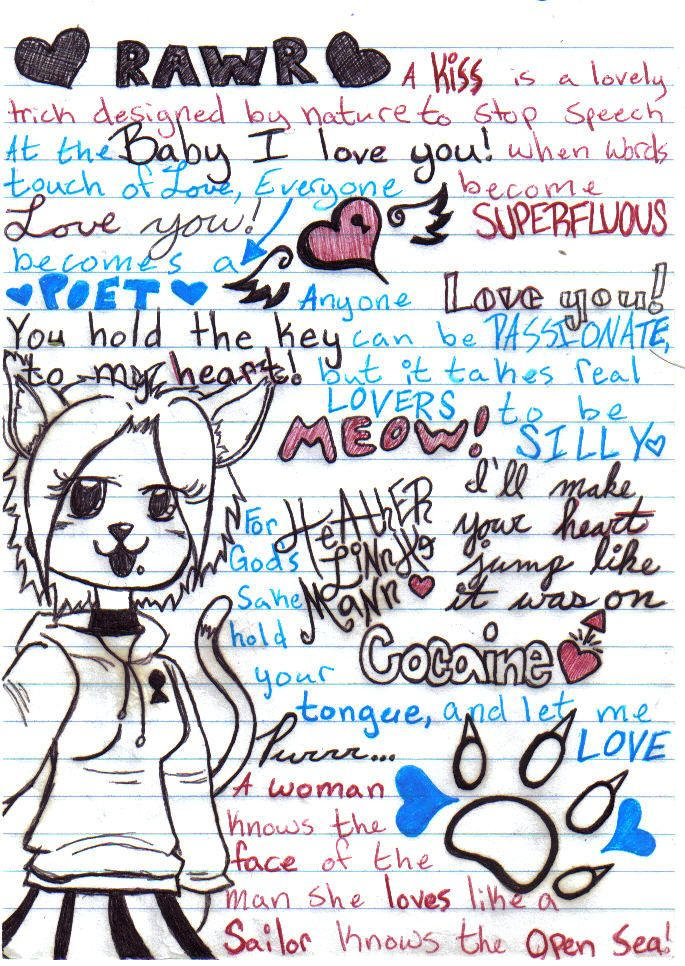 RAWR
A Kiss is a lovely
trick designed by nature to stop speech
when words
become
SUPERFLUOUS
At the
touch of Love, Everyone
becomes a
POET
Baby I love you!
Love you!
Love you!
You hold the key
to my heart!
Anyone
can be PASSIONATE,
but it takes real
LOVERS to be
SILLY
MEOW!
HeAtHER
I'll make
your heart
jump like
it was on
Cocaine
For
God's
Sake
hold
your
tongue, and let me
LOVE
Purrr...
A woman
knows the
face of the
man she loves like a
Sailor knows the Open Sea!